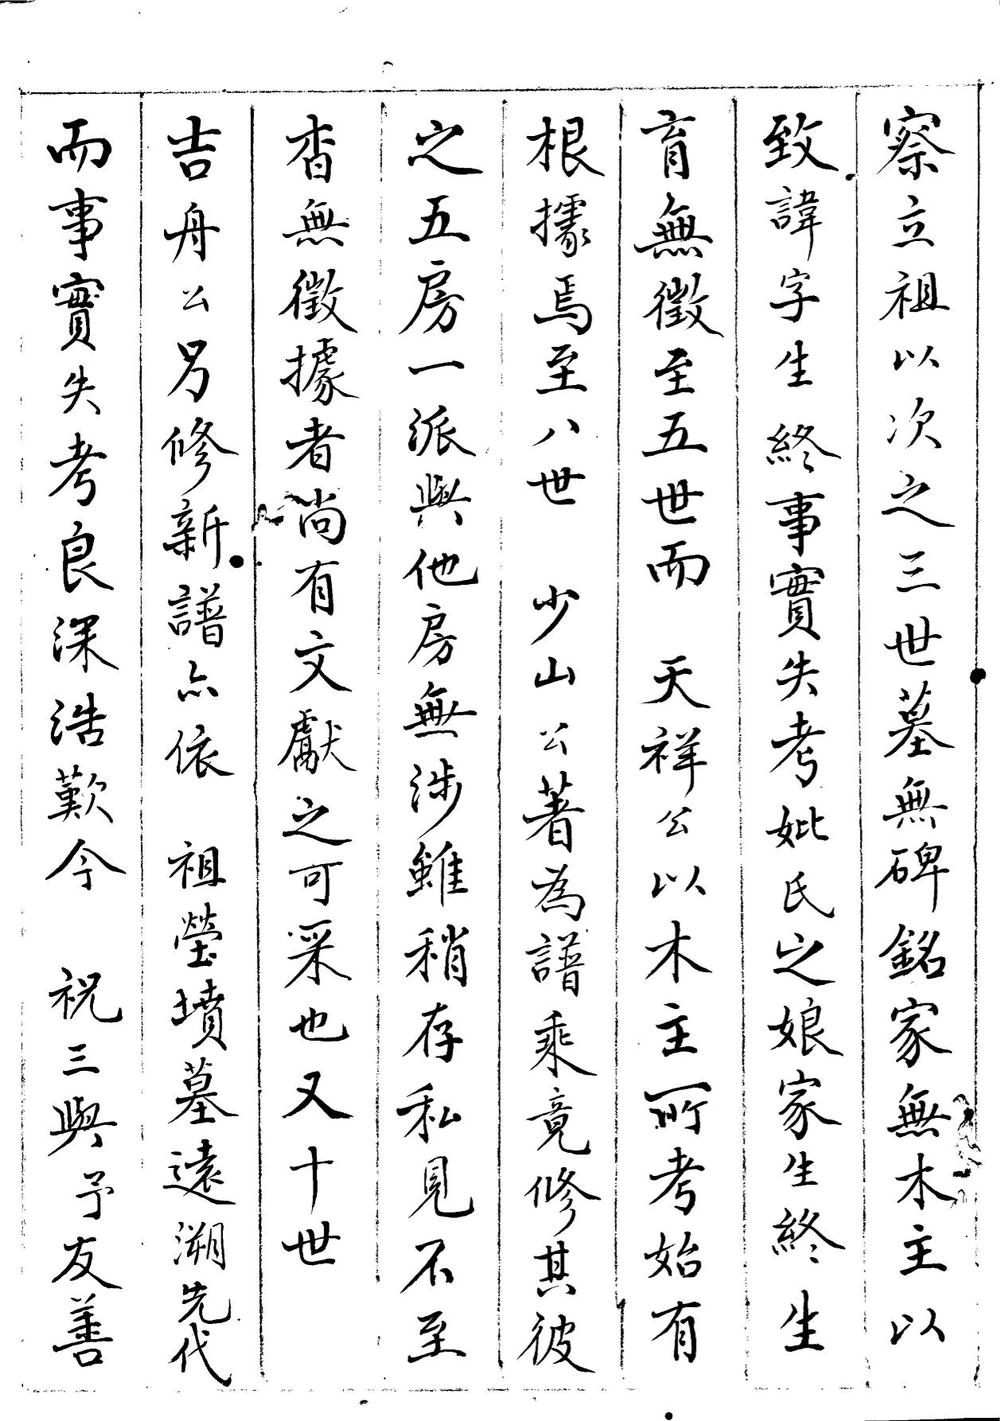 察立祖以次之三世墓無碑銘家無木主以
致諱字生終事實失考妣氏之娘家生終生
育無徵至五世而　天祥公以木主所考始有
根據焉至八世　少山公著為譜乘竟修其彼
之五房一派與他房無涉雖稍存私見不至
杳無徵據者尚有文獻之可采也又十世
吉舟公另修新譜亦依　祖瑩墳墓遠溯先代
而事實失考良深浩歎今　祝三與予友善